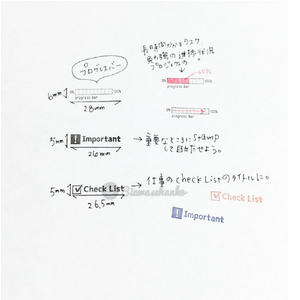 プログレスバー
長時間かかるタスク
0% 100%
progress bar
6mm
28mm
0% 100%
progress bar
60%
0% 100%
progress bar
5mm
! Important
26mm
→ 重要なところにstamp
して目立たせよう。
5mm
Check List
26,5mm
→ 仕事のcheck Listのタイトルに。
Check List
! Important